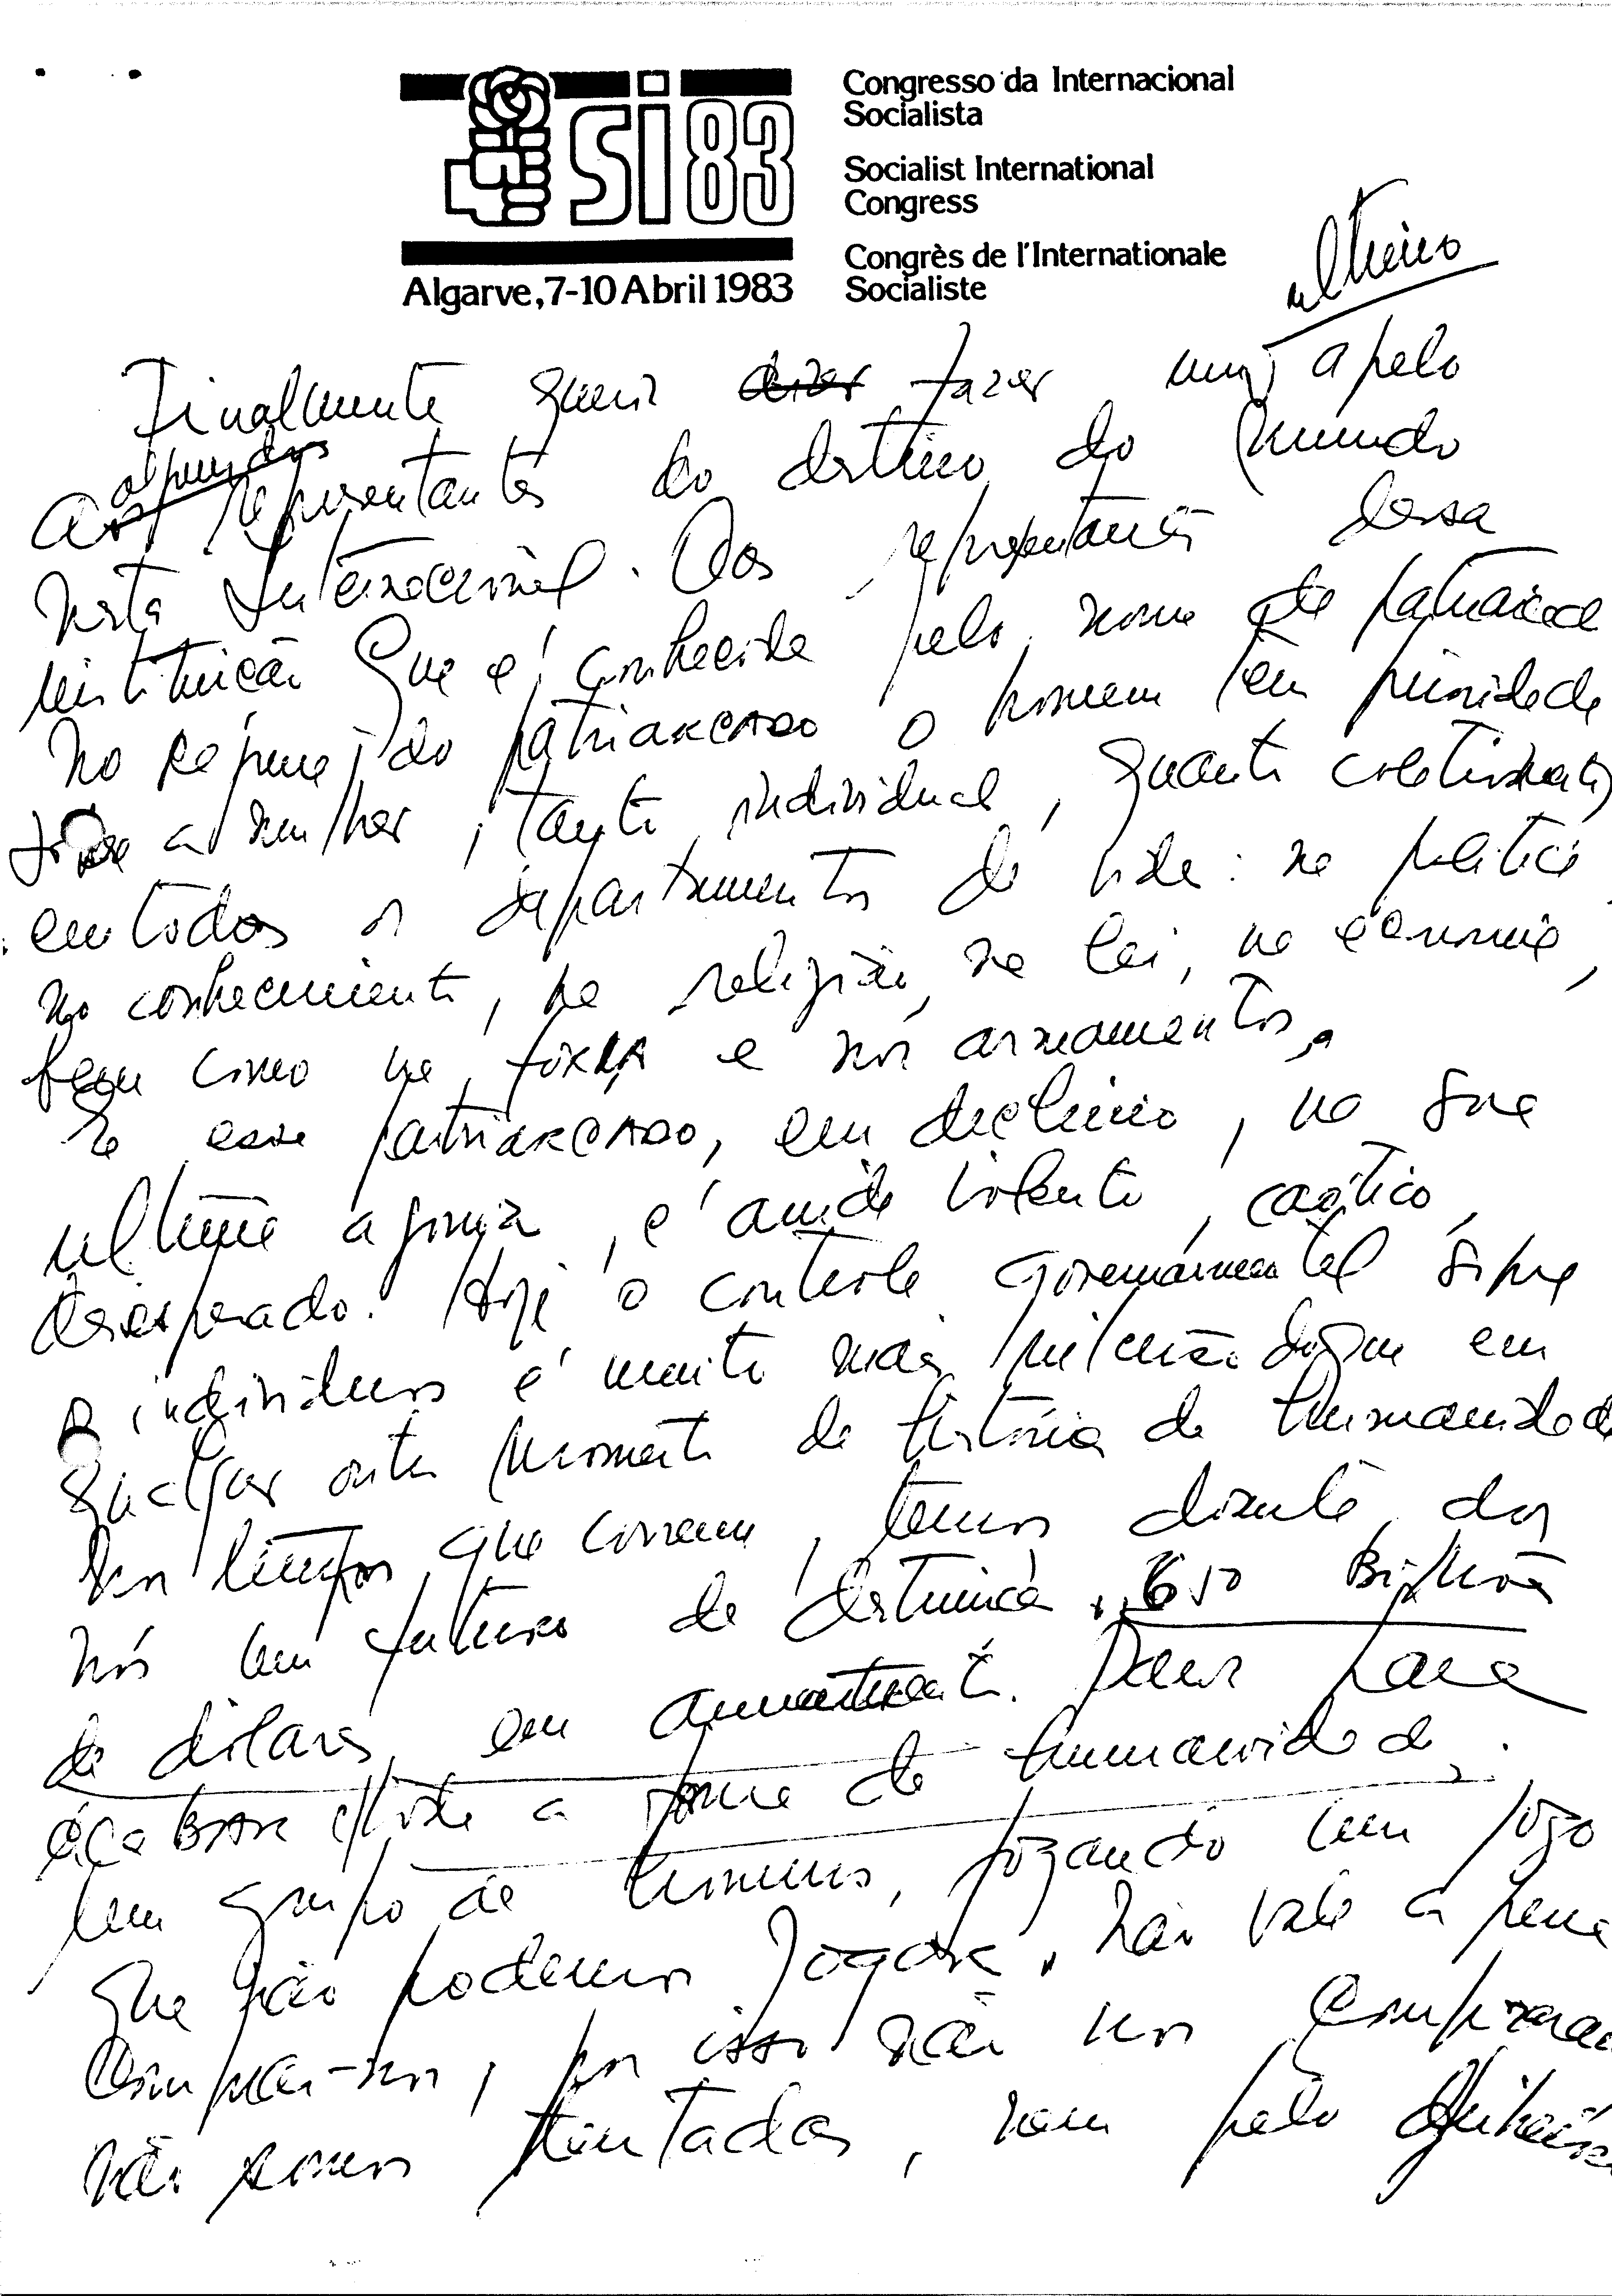 SI 83
Algarve, 7-10 Abril 1983
Congresso da Internacional
Socialista
Socialist International
Congress
Congrès de l'Internationale
Socialiste
último
Finalmente queria dizer fazer um apelo
alguns dos
aos representantes do destino do mundo
nesta Internacional. Aos representantes dessa
instituição que é conhecida pelo nome de patriarcado
No regime do patriarcado o homem tem prioridade
sobre a mulher, tanto individual, quanto coletivamente
em todos os departamentos da vida: na política
no conhecimento, na religião, na lei, na economia,
bem como na força e nos armamentos.
E esse patriarcado, em declínio, na sua
última agonia, é ainda violento, caótico,
desesperado. Hoje o controle governamental sobre
o indivíduos é muito mais do que em
qualquer outro momento da história da humanidade
Nos tempos que correm, temos diante de
nós um futuro de destruição. 650 Bilhões
de dólares em armamento. Daria para
acabar com a fome da humanidade.
Um grupo de homens, jogando um jogo
que não podemos jogar. Não vale a pena
comprar-nos, por isso não nos compraram
não somos tentadas, nem pelo dinheiro